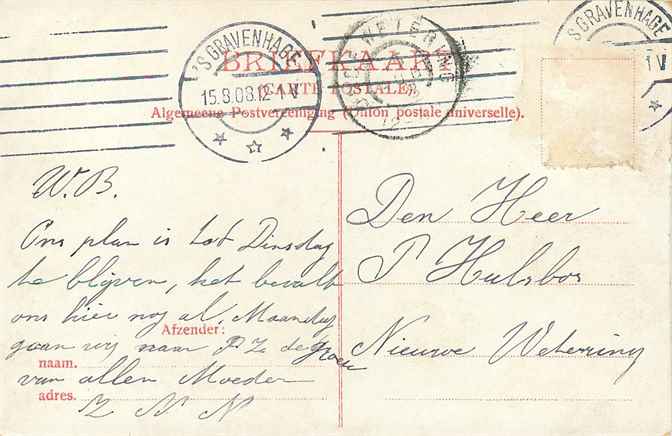 BRIEFKAART
(CARTE POSTALE)
Algemeene Postvereeniging (Union postale universelle).
'S GRAVENHAGE
15.8.08.12-1 V
WETERING
'S GRAVENHAGE
1 V
W. B.
Ons plan is tot Dinsdag
te blijven, het bevalt
ons hier nog al, Maandag
gaan wij naar de
van allen Moeder
Z N N
Afzender:
naam.
adres.
Den Heer
P Hulsbos
Nieuwe Weterring